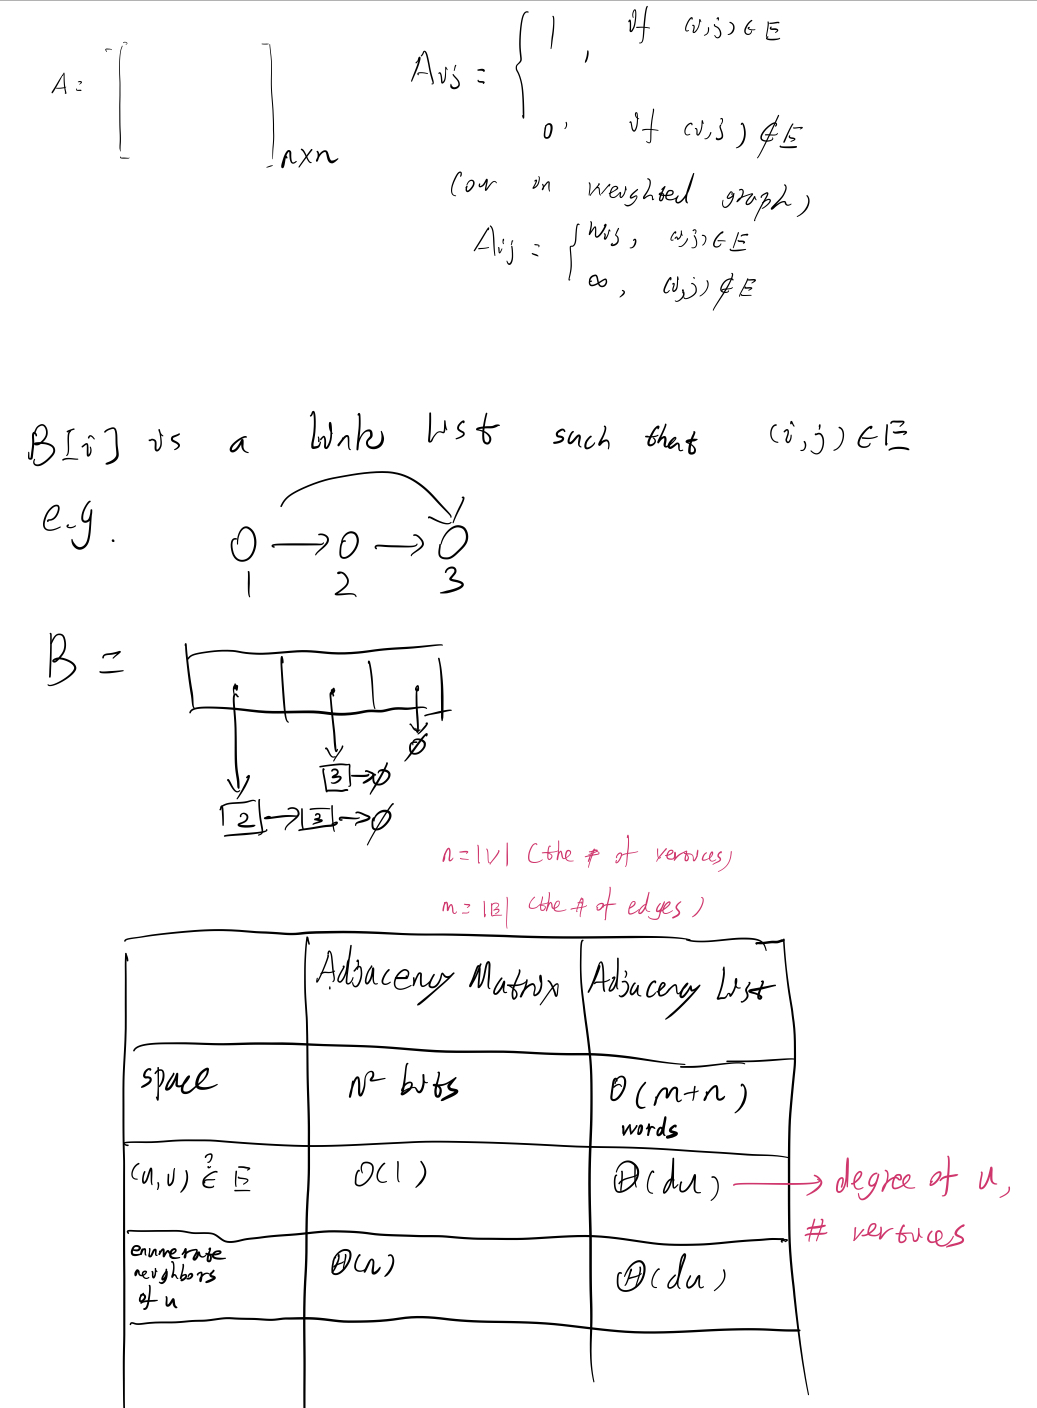 A = [ ] n×n
A_ij = { 1, if (i,j) ∈ E
0, if (i,j) ∉ E
(or in weighted graph)
A_ij = { w_ij, (i,j) ∈ E
∞, (i,j) ∉ E
B[i] is a link list such that (i,j) ∈ E
e.g.
1 2 3
B =
∅
3 → ∅
2 → 3 → ∅
n = |V| (the # of vertices)
m = |E| (the # of edges)
Adjacency Matrix Adjacency List
space n² bits Θ(m+n)
words
(u,v) ∈? E O(1) Θ(du) → degree of u,
# vertices
enumerate
neighbors
of u Θ(n) Θ(du)